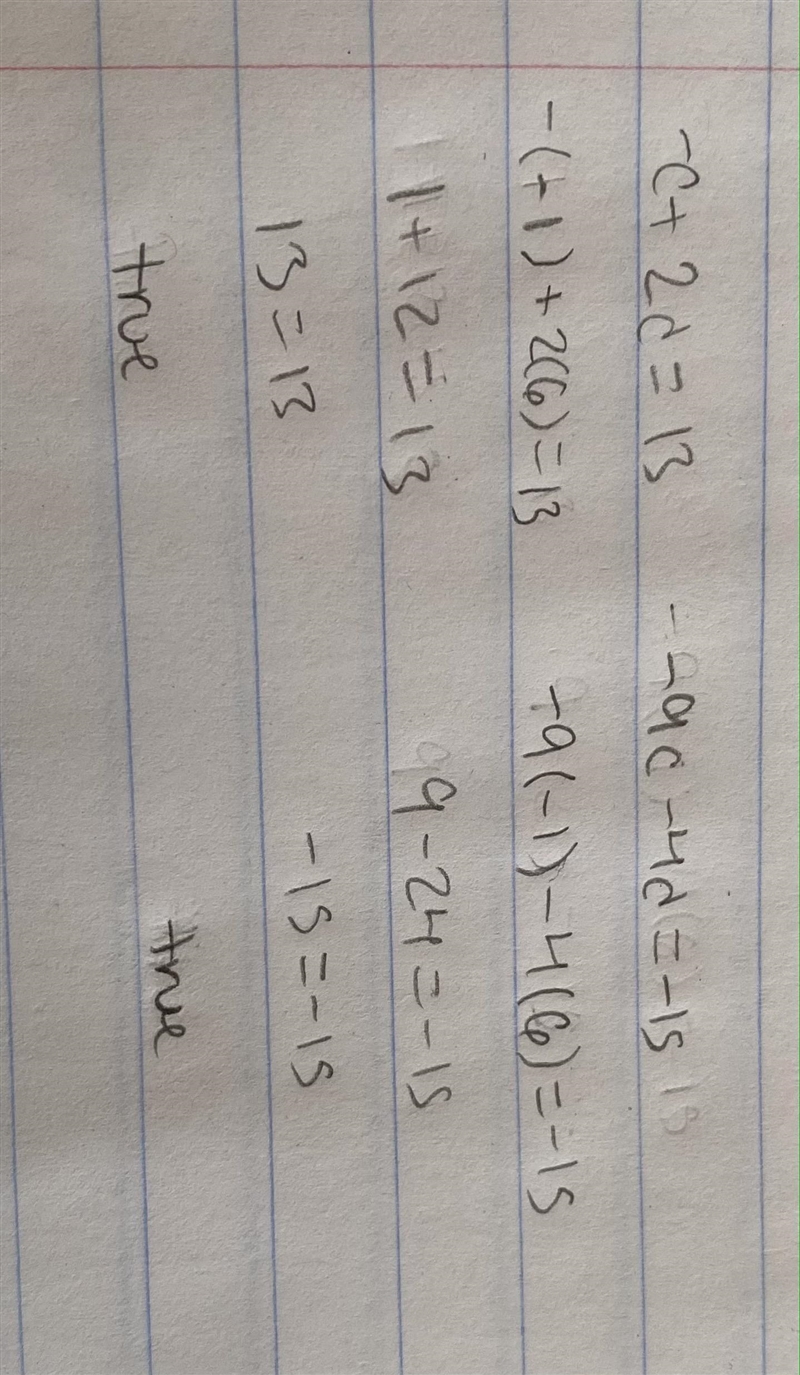 -c + 2d = 13 -9c - 4d = -15
-(+1) + 2(6) = 13 -9(-1) - 4(6) = -15
1 + 12 = 13 9 - 24 = -15
13 = 13 -15 = -15
true true